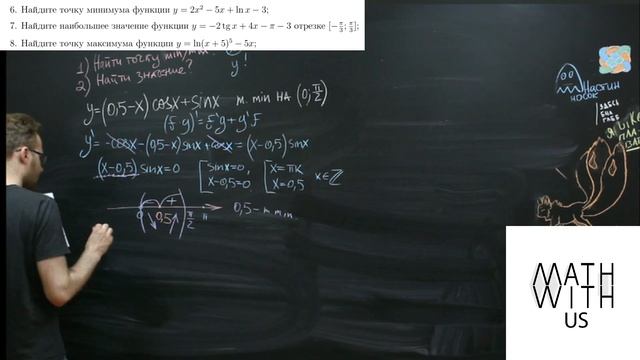 6. Найдите точку минимума функции y = 2x² − 5x + ln x − 3;
7. Найдите наибольшее значение функции y = −2 tg x + 4x − π − 3 отрезке [−π/3; π/3];
8. Найдите точку максимума функции y = ln(x + 5)⁵ − 5x;
1) Найти точку min/max?
2) Найти значение?
y!
y=(0,5-x)cosx+sinx т. min НА (0; π/2)
(f·g)'=f'g+g'f
y'=-cosx-(0,5-x)sinx+cosx=(x-0,5)sinx
(x-0,5)sinx=0 [sinx=0, x-0,5=0 [x=πk x=0,5 k∈ℤ
0 0,5 π/2 π 0,5 - т. min
НАСТИН
НОСОК
ЗДЕСЬ
БЫЛ
MATH
WITH
US